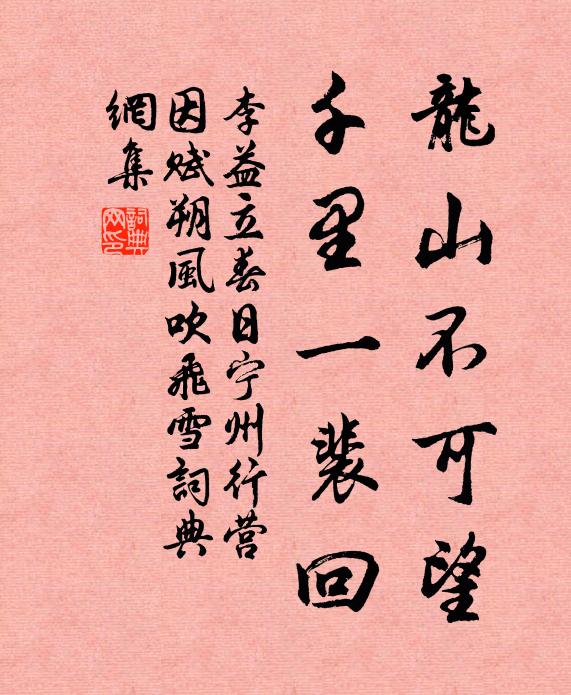 龍山不可望
千里一裴回
李益立春日宁州行营
因赋朔風吹飛雪詞典
網集
詞典
网印